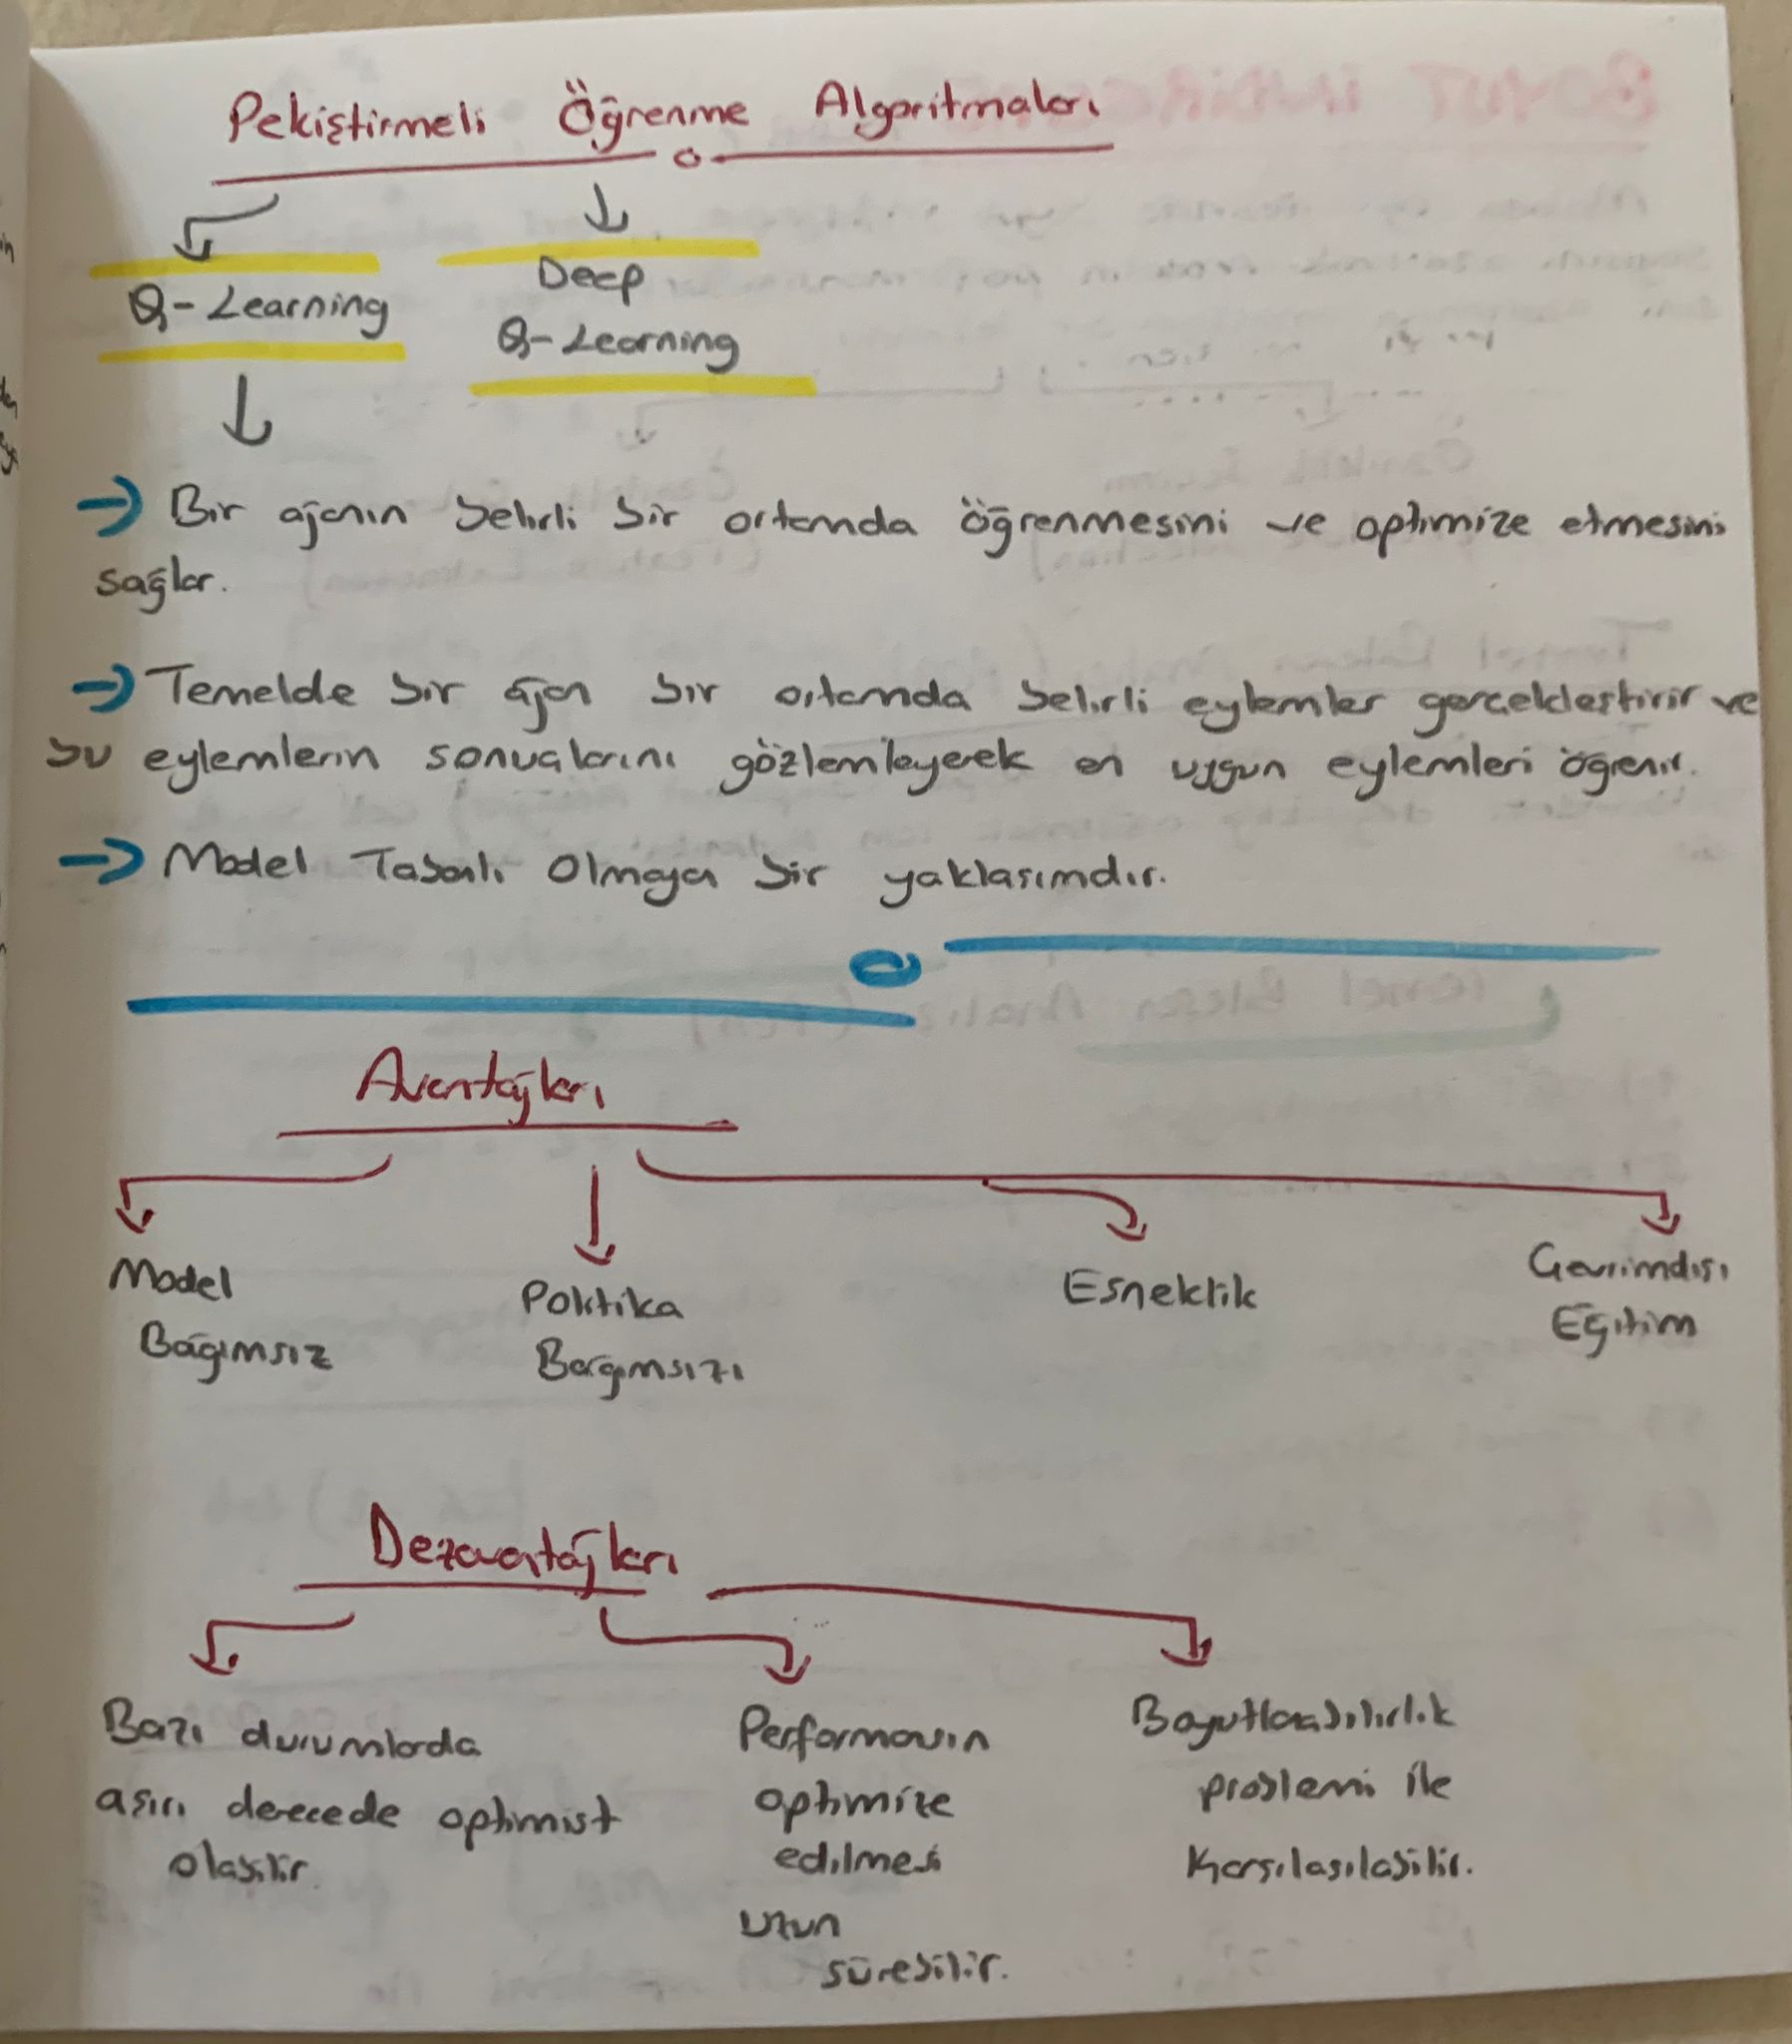 Pekiştirmeli Öğrenme Algoritmaları
Q-Learning
Deep
Q-Learning
Bir ajanın belirli bir ortamda öğrenmesini ve optimize etmesini
sağlar.
Temelde bir ajan bir ortamda belirli eylemler gerçekleştirir ve
bu eylemlerin sonuçlarını gözlemleyerek en uygun eylemleri öğrenir.
Model Tabanlı Olmayan bir yaklaşımdır.
Avantajları
Model
Bağımsız
Politika
Bağımsızı
Esneklik
Çevrimdışı
Eğitim
Dezavantajları
Bazı durumlarda
aşırı derecede optimist
olabilir.
Performansın
optimize
edilmesi
uzun
sürebilir.
Boyutlanabilirlik
problemi ile
Karşılaşılabilir.